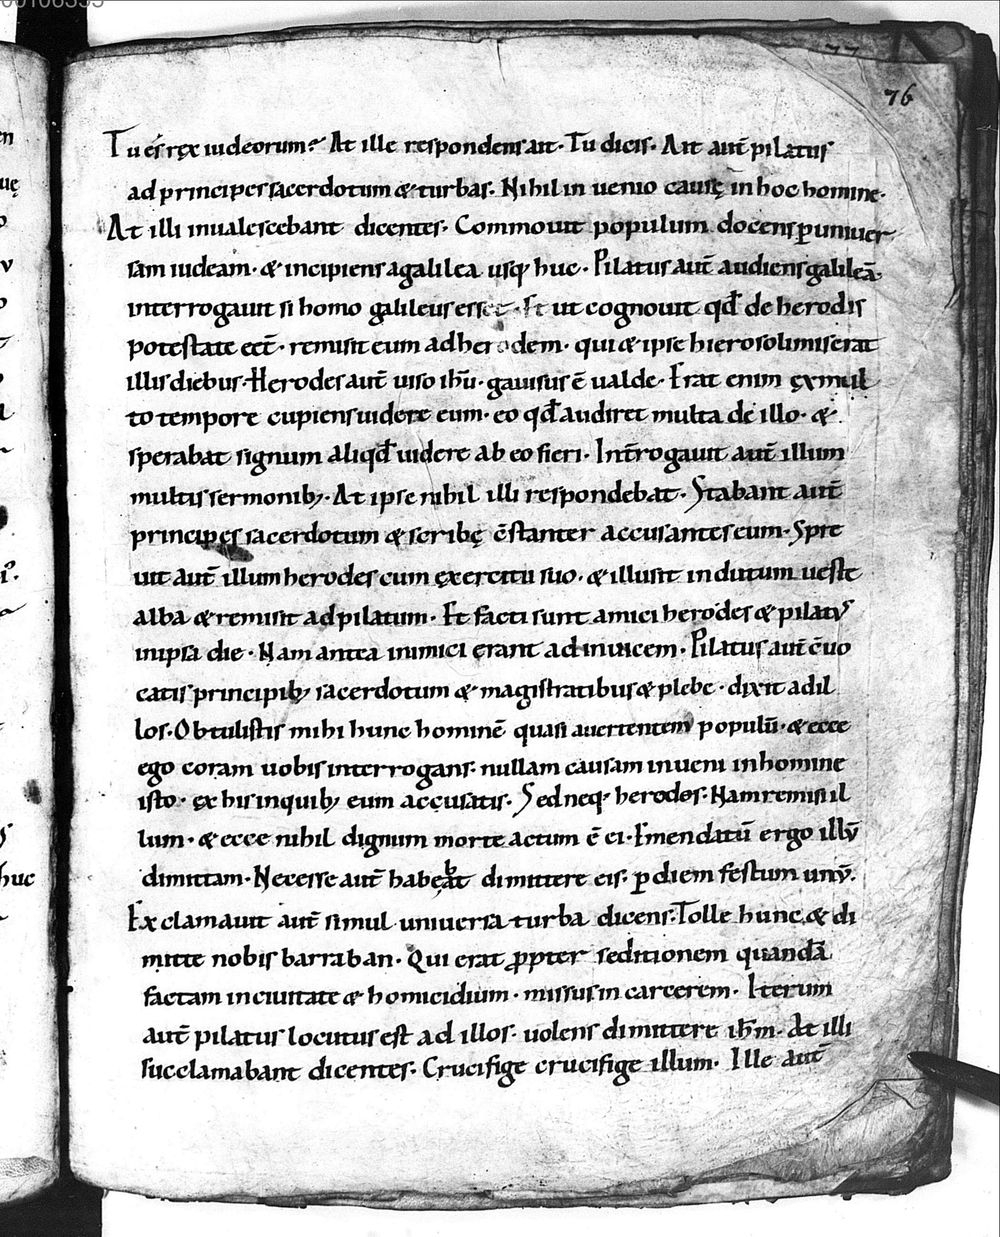 00106555
77
76
Tu es rex iudeorum? At ille respondens ait. Tu dicis. Ait aut̄ pilatus
ad principes sacerdotum & turbas. Nihil inuenio causę in hoc homine.
At illi inualescebant dicentes. Commouit populum docens ꝑ uniuer
sam iudeam. & incipiens a galilea usq; huc. Pilatus aut̄ audiens galileā
interrogauit si homo galileus esset. Et ut cognouit qđ de herodis
potestate eēt. remisit eum ad herodem. qui & ipse hierosolimis erat
illis diebus. Herodes aut̄ uiso ihū. gauisus ē ualde. Erat enim ęx mul
to tempore cupiens uidere eum. eo qđ audiret multa de illo. &
sperabat signum aliqđ uidere ab eo fieri. Int̄rogauit aut̄ illum
multis sermonib; At ipse nihil illi respondebat. Stabant aut̄
principes sacerdotum & scribę c̄stanter accusantes eum. Spre
uit aut̄ illum herodes cum ęxercitu suo. & illusit indutum ueste
alba & remisit ad pilatum. Et facti sunt amici herodes & pilatus
in ipsa die. Nam antea inimici ęrant ad inuicem. Pilatus aut̄ c̄uo
catis principib; sacerdotum & magistratibus & plebe. dixit ad il
los. Obtulistis mihi hunc hominē quasi auertentem populū. & ecce
ego coram uobis interrogans. nullam causam inueni in homine
isto. ęx his in quib; eum accusatis. Sed neq; herodes. Nam remisi il
lum. & ecce nihil dignum morte actum ē ei. Emendatū ergo illū
dimittam. Necesse aut̄ habebat dimittere eis. ꝑ diem festum unū.
Exclamauit aut̄ simul uniuersa turba dicens. Tolle hunc & di
mitte nobis barraban. Qui erat ꝓpter seditionem quandā
factam in ciuitate & homicidium. missus in carcerem. Iterum
aut̄ pilatus locutus est ad illos. uolens dimittere ihm̄. At illi
succlamabant dicentes. Crucifige crucifige illum. Ille aut̄
huc